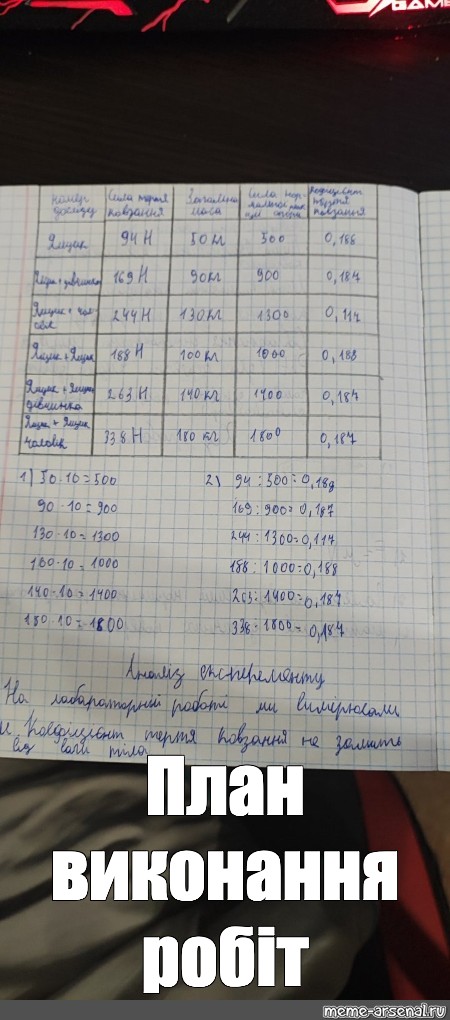 GAME
номер досліду | Сила тертя ковзання | Загальна маса | Сила нор- | Коефіцієнт тертя ковзання
Ящик | 94 Н | 50 кг | 500 | 0,188
169 Н | 90 кг | 900 | 0,187
Ящик + чоловік | 244 Н | 130 кг | 1300 | 0,117
Ящик + Ящик | 188 Н | 100 кг | 1000 | 0,188
Ящик + Ящик дівчинка | 263 Н | 140 кг | 1400 | 0,187
Ящик + Ящик чоловік | 338 Н | 180 кг | 1800 | 0,187
1) 50·10=500
2) 94:500=0,188
90·10=900
169:900=0,187
130·10=1300
244:1300=0,117
100·10=1000
188:1000=0,188
140·10=1400
263:1400=0,187
180·10=1800
338:1800=0,187
Аналіз експеременту
На лабараторній работі ми вимірювали
Коефіцієнт тертя ковзання не залжить
від ваги тіла
План
виконання
робіт
meme-arsenal.ru